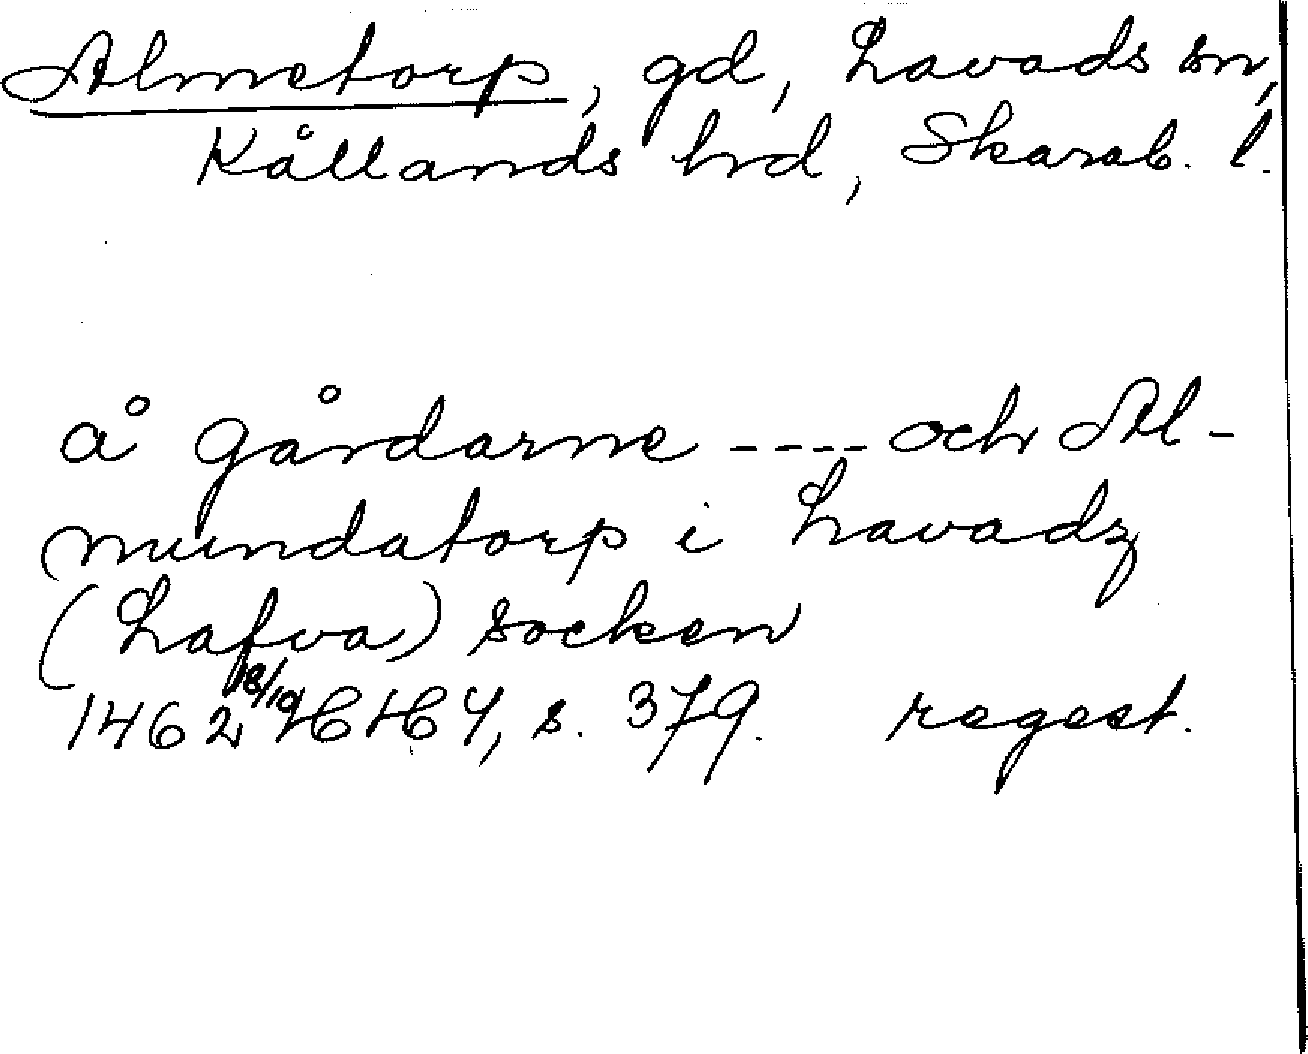 Almetorp, gd, Lavads sn,
Kållands hrd, Skarab. l.
å gårdarne ---- och Al-
mundatorp i Lavadz
(Lafva) socken
1462 18/10 HH 4, s. 379. regest.